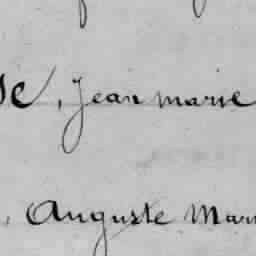 , Jean marie
, Auguste Mari